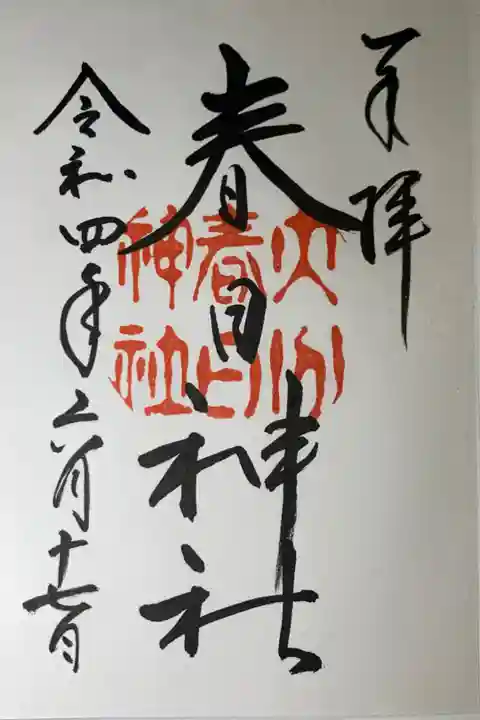 奉拝
春日神社
大分
春日
神社
令和四年六月十七日